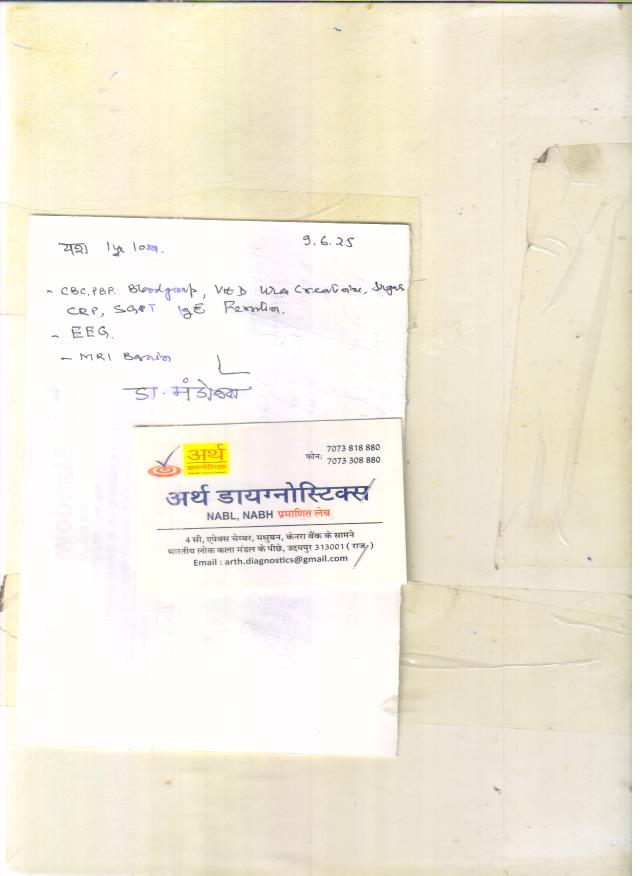 यश 1yr 10m. 9.6.25
- CBC, PBF. Bloodgroup, Vit D Urea Creatinine, Sugar
CRP, SGPT IgE Ferritin.
- EEG.
- MRI Brain
डा.
अर्थ
डायग्नोस्टिक्स
फोन: 7073 818 880
7073 308 880
अर्थ डायग्नोस्टिक्स
NABL, NABH प्रमाणित लेब
4 सी, एपेक्स चेम्बर, मधुबन, केनरा बैंक के सामने
भारतीय लोक कला मंडल के पीछे, उदयपुर 313001 ( राज. )
Email : arth.diagnostics@gmail.com